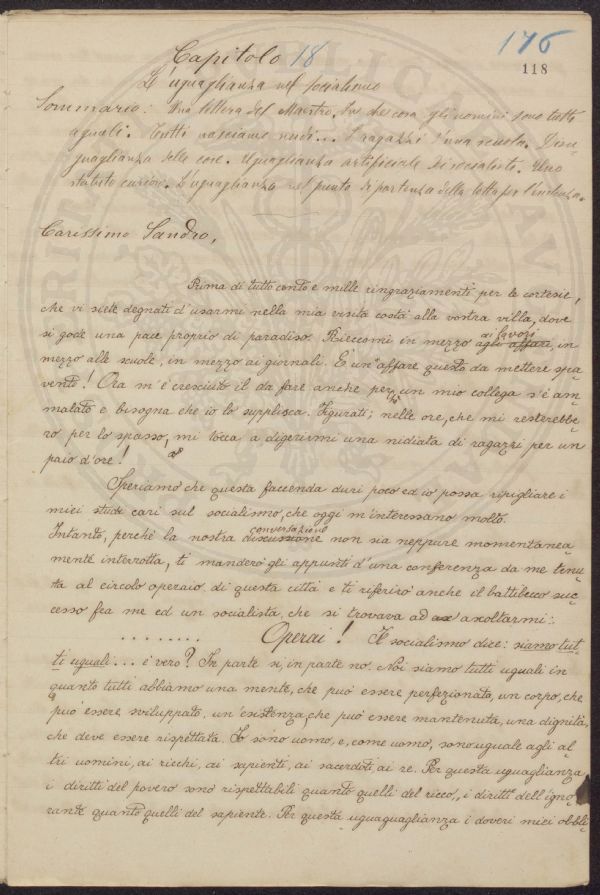 176
118
Capitolo 18
L'uguaglianza nel socialismo
Sommario: Una lettera del Maestro. In che cosa gli uomini sono tutti
uguali. Tutti nasciamo nudi... I ragazzi d'una scuola. Disu-
guaglianza delle cose. Uguaglianza artificiale dei socialisti. Uno
statuto curioso. L'uguaglianza nel punto di partenza della lotta per l'esistenza.
Carissimo Sandro,
Prima di tutto cento e mille ringraziamenti per le cortesie,
che vi siete degnati d'usarmi nella mia visita costà alla vostra villa, dove
si gode una pace proprio di paradiso. Rieccomi in mezzo agli affari, ai lavori in
mezzo alle scuole, in mezzo ai giornali. È un affare questo da mettere spa-
vento! Ora m'è cresciuto il da fare anche perchè un mio collega s'è am-
malato e bisogna che io lo supplisca. Figurati; nelle ore, che mi resterebbe-
ro per lo spasso, mi tocca a digerirmi una nidiata di ragazzi per un
paio d'ore!
Speriamo che questa faccenda duri poco ed io possa ripigliare i
miei studi cari sul socialismo, che oggi m'interessano molto.
Intanto, perché la nostra discussione conversazione non sia neppure momentanea-
mente interrotta, ti manderò gli appunti d'una conferenza da me tenu-
ta al circolo operaio di questa città e ti riferirò anche il battibecco suc-
cesso fra me ed un socialista, che si trovava ad ascoltarmi:
........ Operai! Il socialismo dice: siamo tut-
ti uguali... è vero? In parte sì, in parte no. Noi siamo tutti uguali in
quanto tutti abbiamo una mente, che può essere perfezionata, un corpo, che
può essere sviluppato, un'esistenza, che può essere mantenuta, una dignità,
che deve essere rispettata. Io sono uomo, e, come uomo, sono uguale agli al-
tri uomini, ai ricchi, ai sapienti, ai sacerdoti, ai re. Per questa uguaglianza
i diritti del povero sono rispettabili quanto quelli del ricco, i diritti dell'igno-
rante quanto quelli del sapiente. Per questa uguaguaglianza i doveri miei obbli-